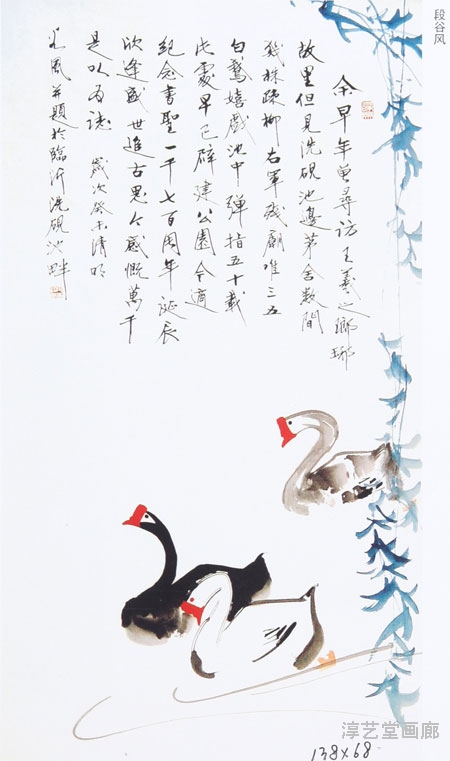 段谷风
余早年曾寻访王羲之瑯琊
故里但见洗砚池边茅舍数间
残株疏柳右军残廟唯三五
白鹅嬉戏池中弹指五十载
此處早已辟建公園今適
纪念書聖一千七百周年诞辰
欣逢盛世追古思今感慨萬千
是以为誌 歲次癸未清明
谷風并題於臨沂洗硯池畔
淳艺堂画廊
138×68